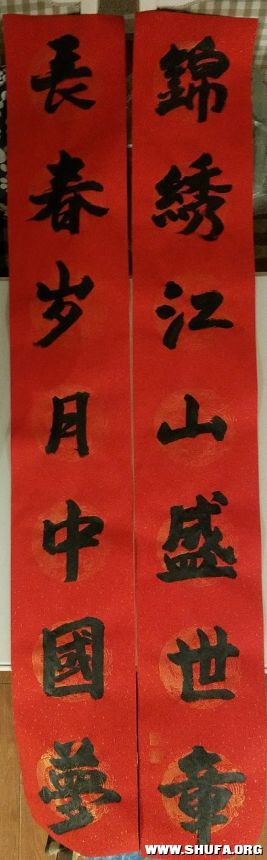 錦綉江山盛世章
長春岁月中國夢
WWW.SHUFA.ORG